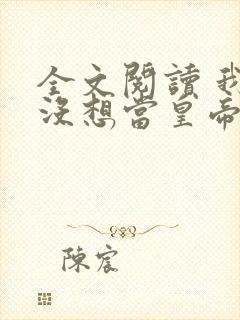 全文閱讀 我
沒想當皇帝
陳宸